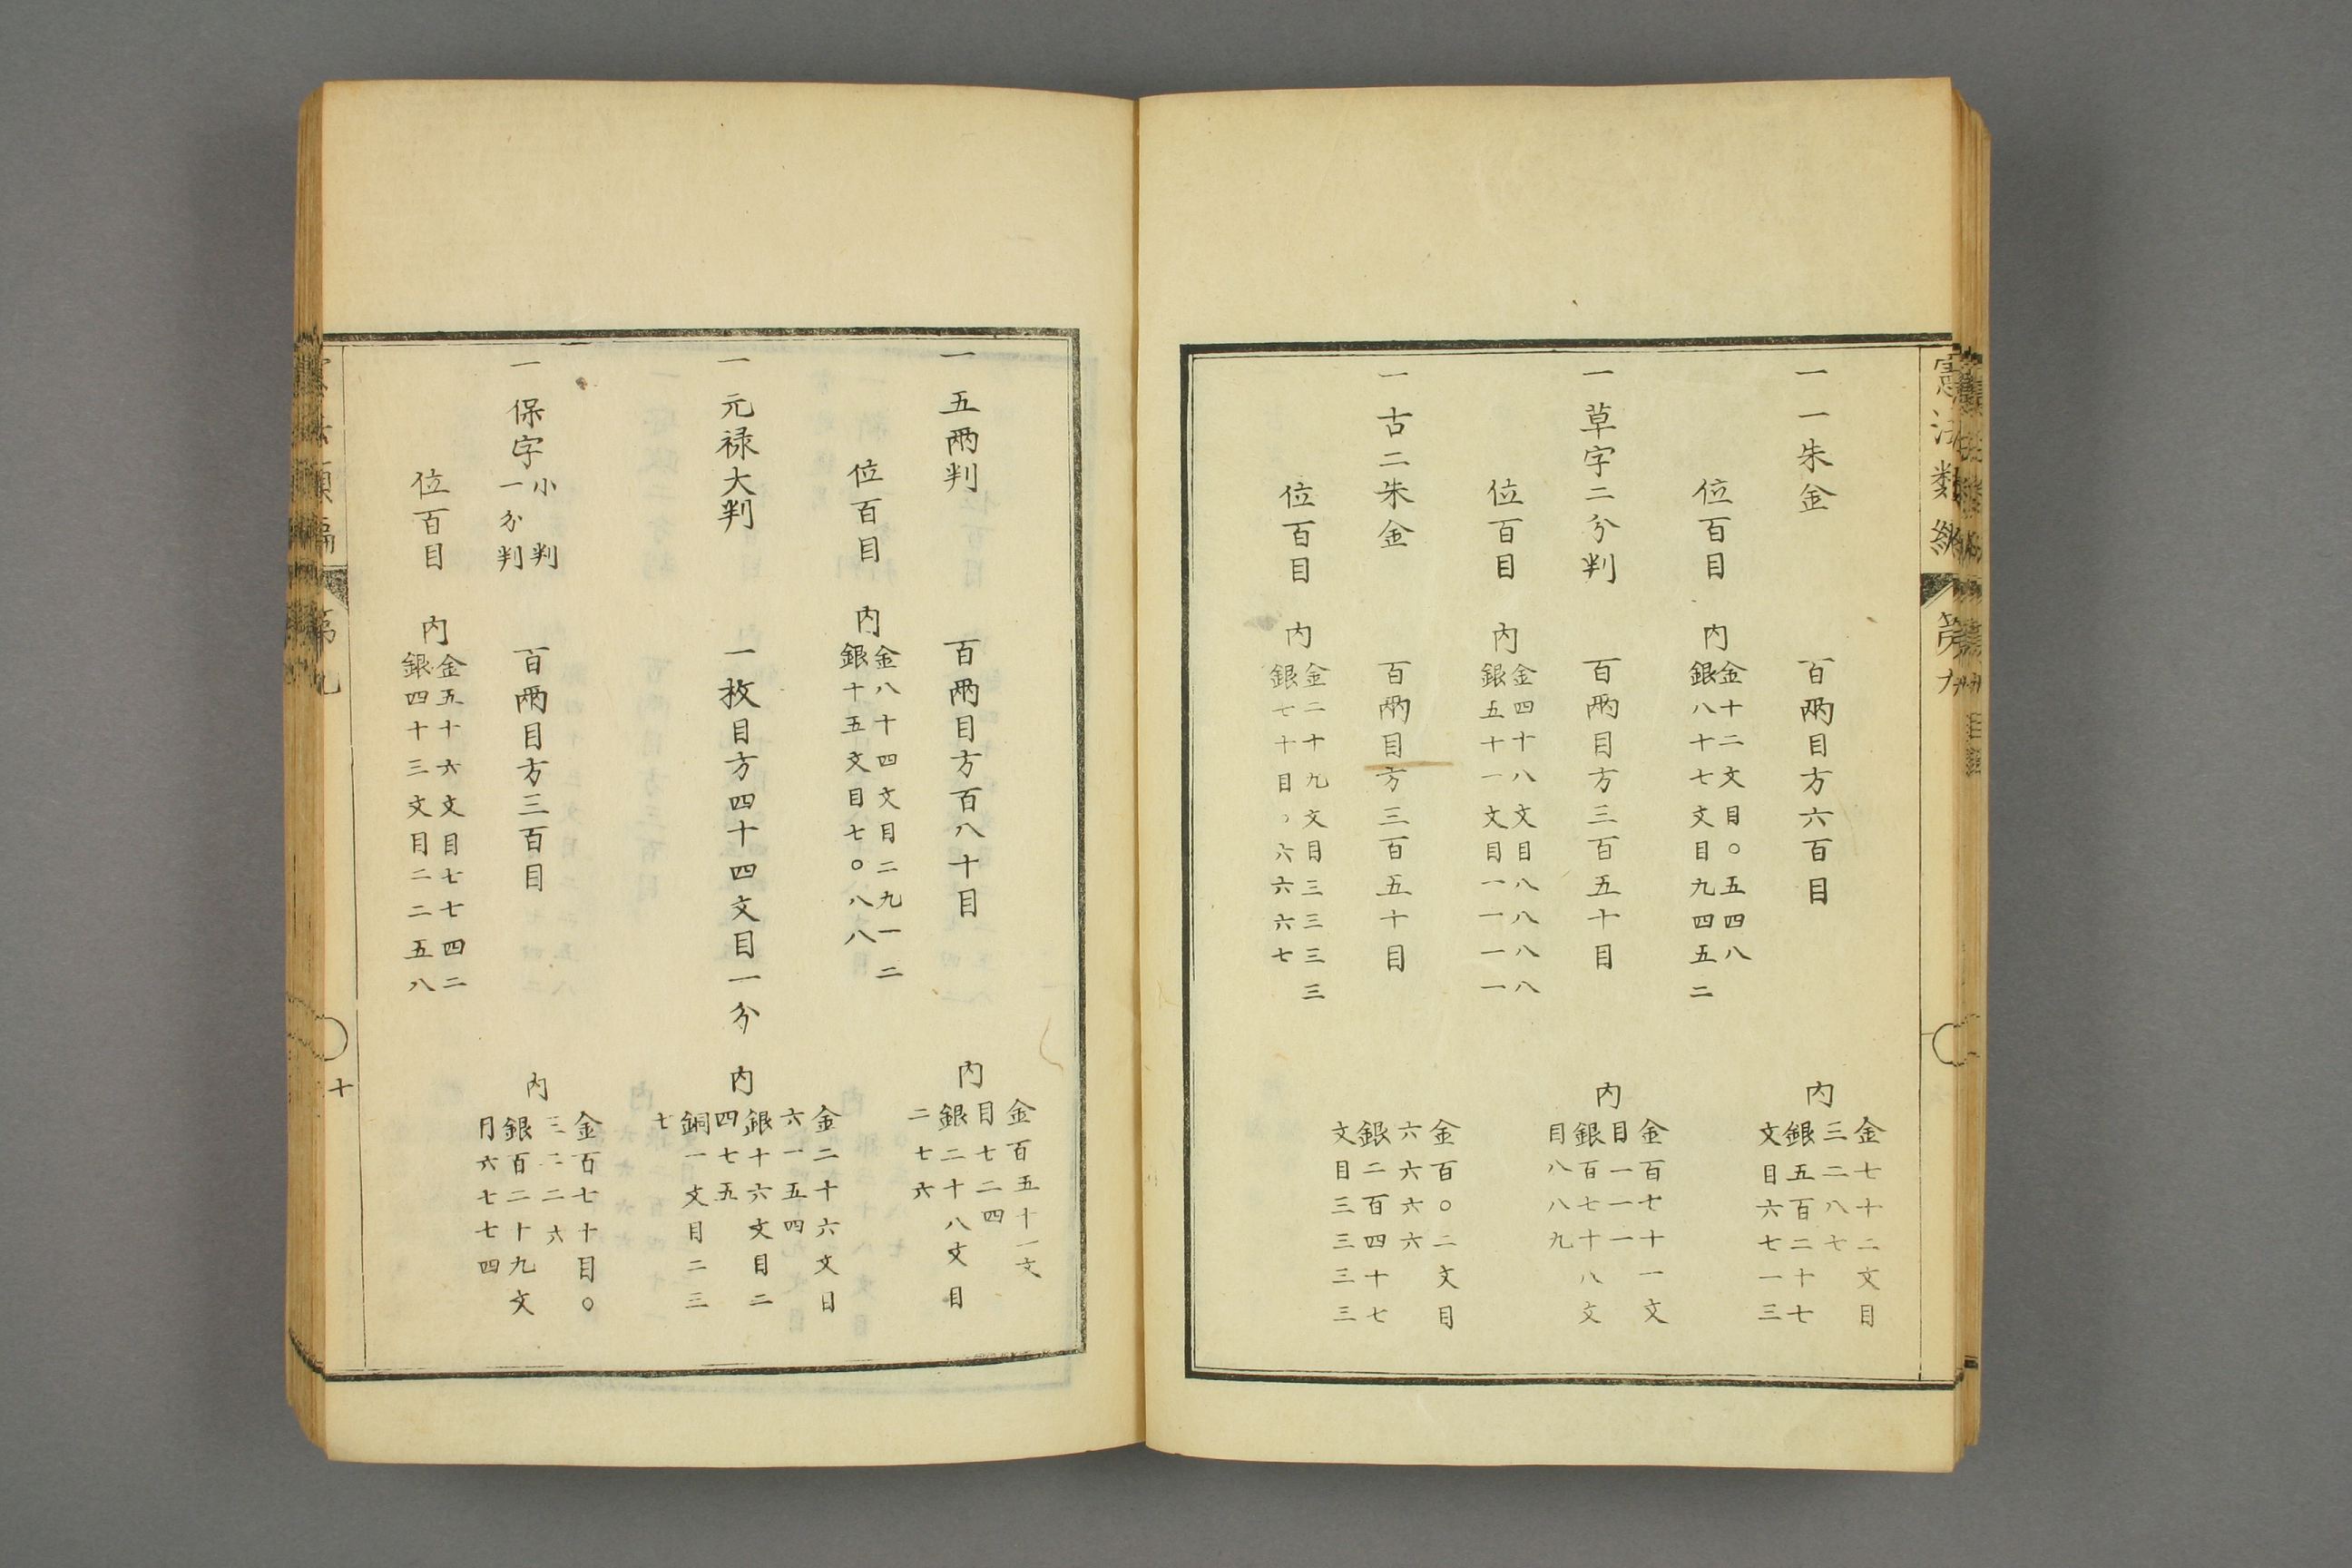 憲法類編
第九
一一朱金
百兩目方六百目
内
金七十二文目
三二八七
銀五百二十七
文目六七一三
位百目
内
金十二文目〇五四八
銀八十七文目九四五二
一草字二分判
百兩目方三百五十目
内
金百七十一文
目一一一
銀百七十八文
目八八九
位百目
内
金四十八文目八八八八
銀五十一文目一一一一
一古二朱金
百兩目方三百五十目
金百〇二文目
六六六六
銀二百四十七
文目三三三三
位百目
内
金二十九文目三三三三
銀七十目、六六六七
一五兩判
百兩目方百八十目
内
金百五十一文
目七二四
銀二十八文目
二七六
位百目
内
金八十四文目二九一二
銀十五文目七〇八八
一元禄大判
一枚目方四十四文目一分
内
金二十六文目
六一五四
銀十六文目二
四七五
銅一文目二三
七
一保字
小判
一分判
百兩目方三百目
内
金百七十目〇
三三二六
銀百二十九文
月六七七四
位百目
内
金五十六文目七七四二
銀四十三文目二二五八
十